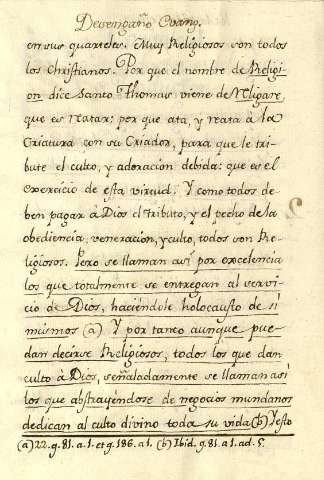 Desengaño Evang.
en sus quarteles. Muy Religiosos son todos
los Christianos. Porque el nombre de Religi-
on dice Santo Thomas viene de Religare,
que es reatar: por que ata, y reata à la
Criatura con su Criador, para que le tri-
bute el culto, y adoracion debida: que es el
exercicio de esta virtud. Y como todos de
ben pagar à Dios el tributo, y el pecho de la
obediencia, veneracion, y culto, todos son Re-
ligiosos. Pero se llaman así por excelencia
los que totalmente se entregan al servi-
cio de Dios, haciendole holocausto de si
mismos (a) Y por tanto aunque pue-
dan decirse Religiosos, todos los que dan
culto à Dios, señaladamente se llaman así
los que abstrayéndose de negocios mundanos
dedican al culto divino toda su vida (b) Y esto
(a) 22. q. 81. a. 1. et q. 186. a. 1. (b) Ibid. q. 81. a. 1. ad. 5.